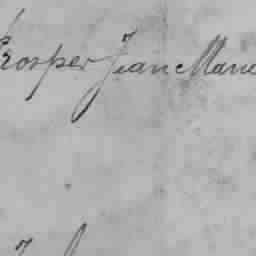 Prosper Jean Marie